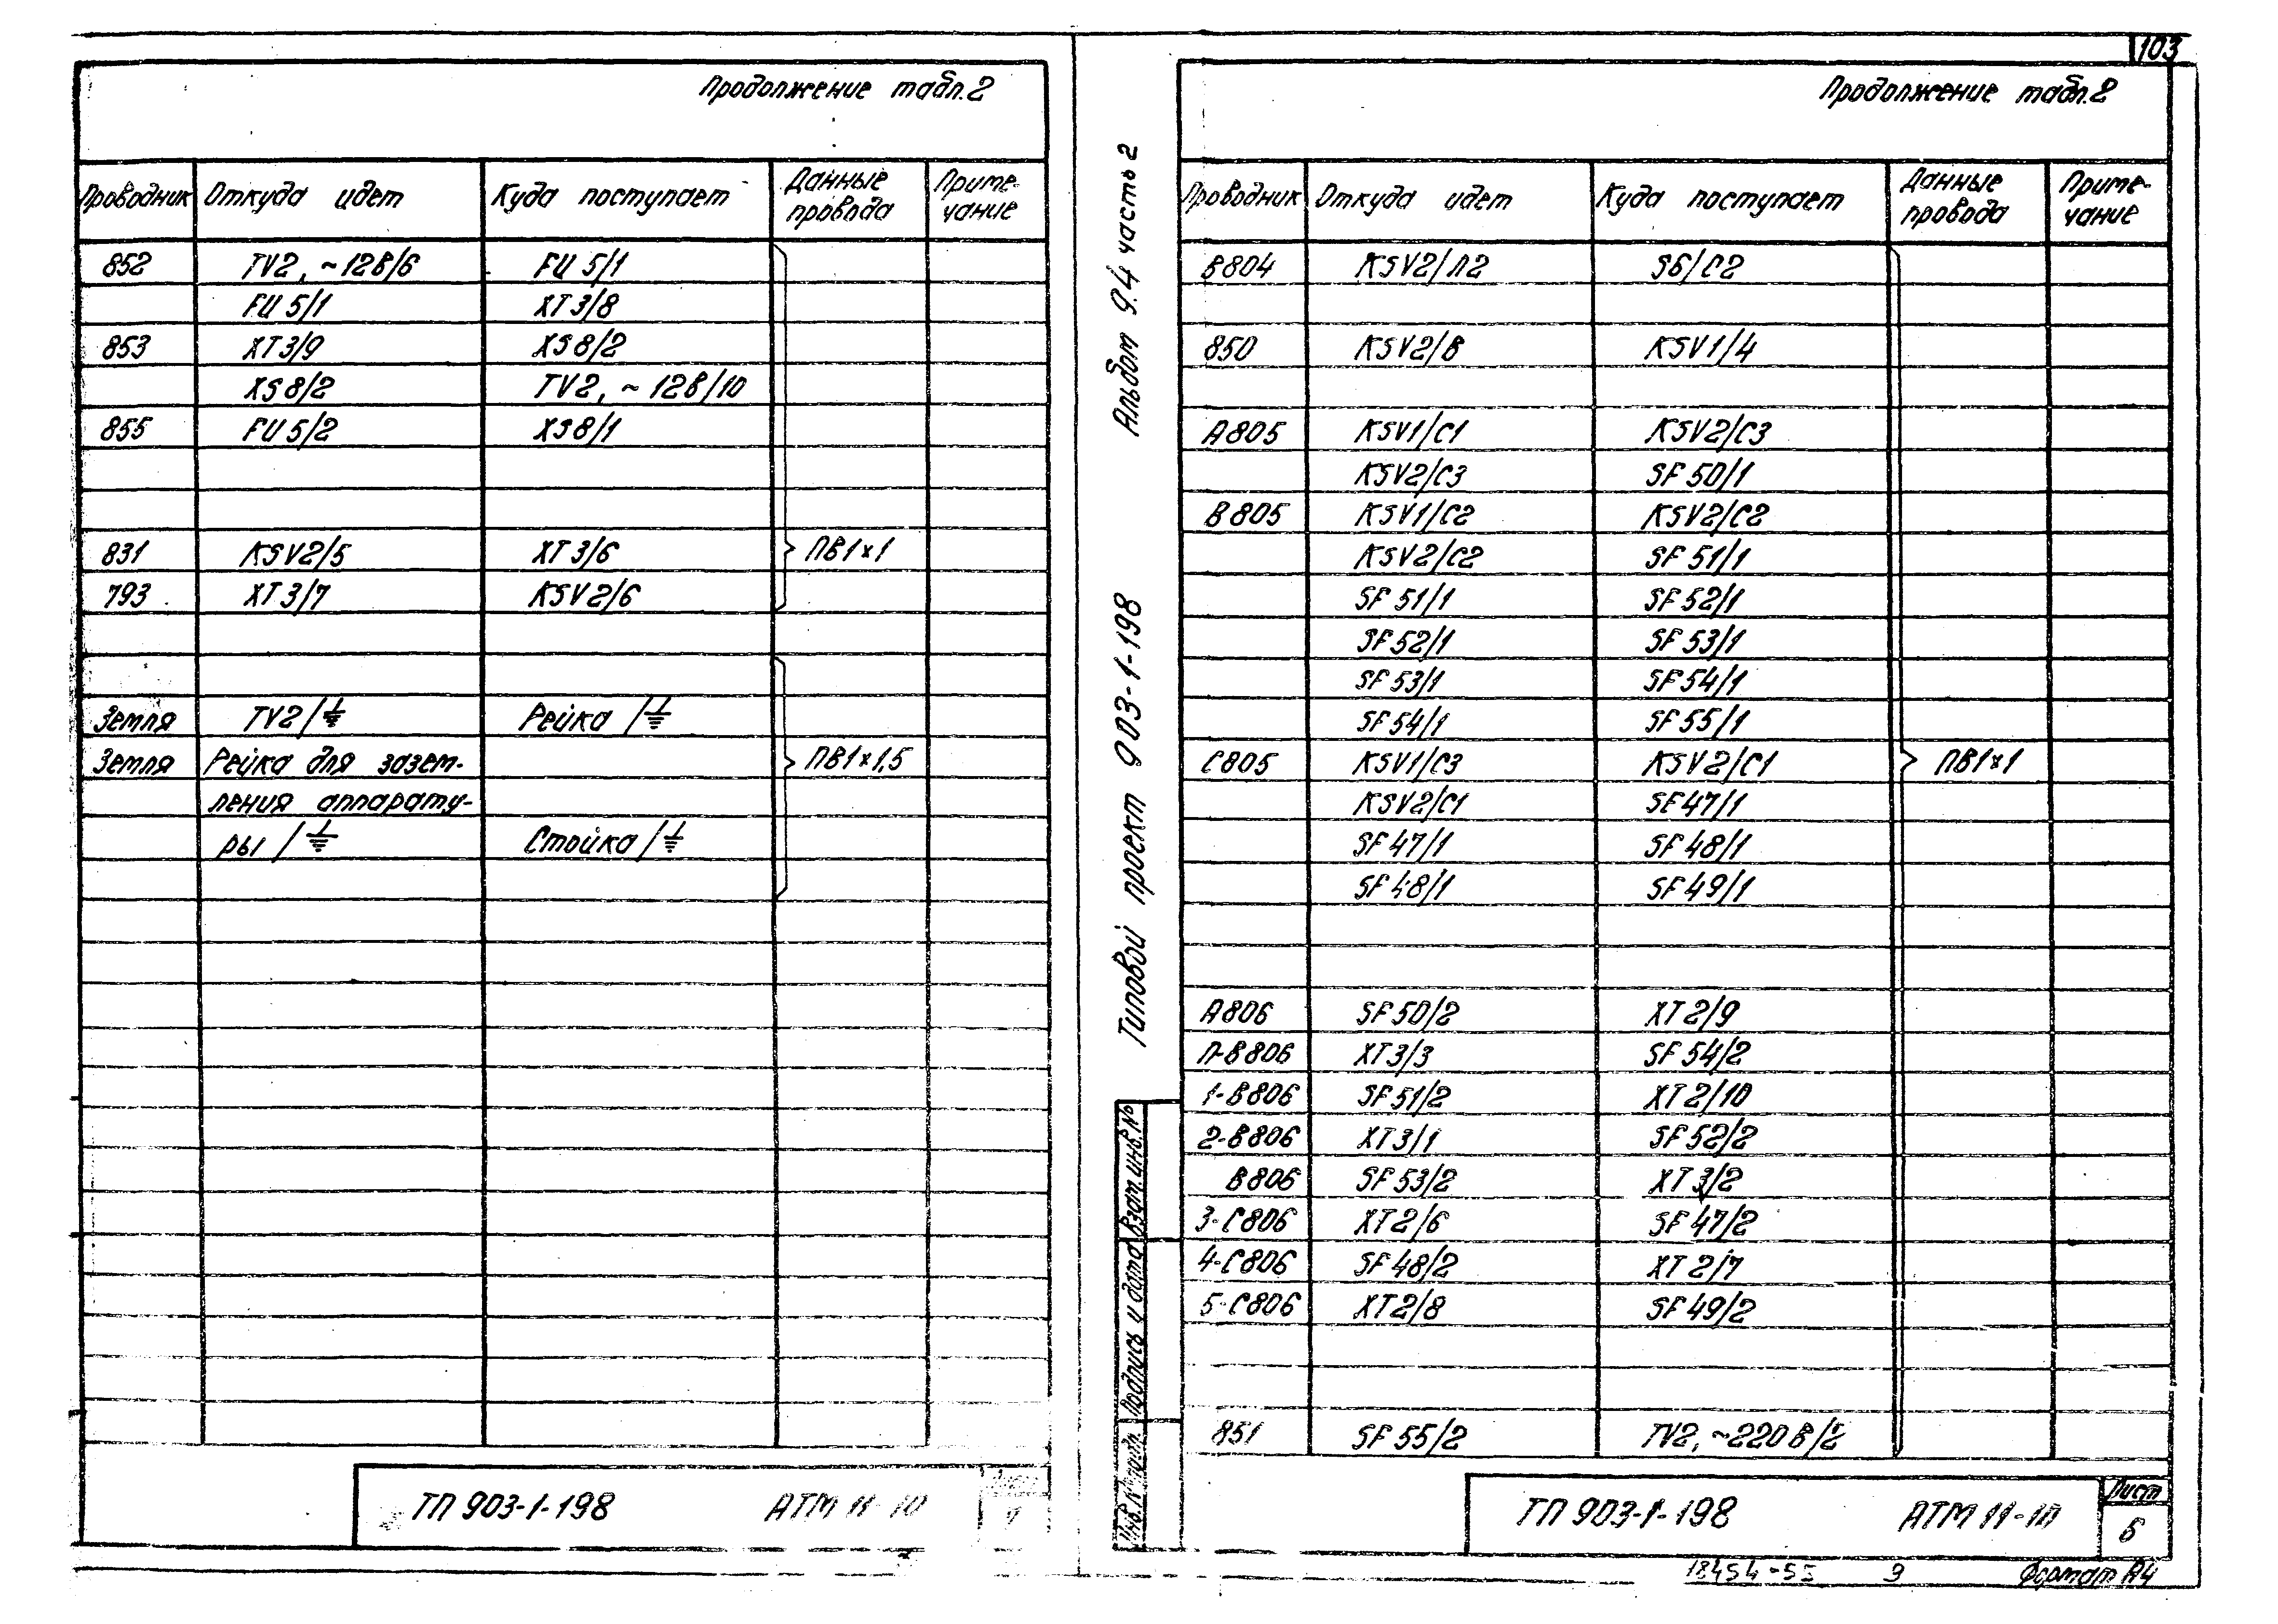 Продолжение табл.2
Проводник Откуда идет Куда поступает Данные провода Приме-чание
852 TV2, ~12В/6 FU 5/1
FU 5/1 XT 3/8
853 XT3/9 XS8/2
XS8/2 TV2, ~12В/10
855 FU 5/2 XS8/1
831 KSV2/5 XT 3/6 ПВ1×1
793 XT3/7 KSV2/6
Земля TV2/⏚ Рейка/⏚
Земля Рейка для зазем- ПВ1×1,5
ления аппарату-
ры/⏚ Стойка/⏚
ТП 903-1-198 АТМ 11-10
103
Продолжение табл.2
Проводник Откуда идет Куда поступает Данные провода Приме-чание
В804 KSV2/Л2 S6/C2
850 KSV2/В KSV1/4
А805 KSV1/C1 KSV2/C3
KSV2/C3 SF 50/1
В805 KSV1/C2 KSV2/C2
KSV2/C2 SF 51/1
SF 51/1 SF 52/1
SF 52/1 SF 53/1
SF 53/1 SF 54/1
SF 54/1 SF 55/1
С805 KSV1/C3 KSV2/C1 ПВ1×1
KSV2/C1 SF 47/1
SF 47/1 SF 48/1
SF 48/1 SF 49/1
А806 SF 50/2 XT 2/9
П-В806 XT3/3 SF 54/2
1-В806 SF 51/2 XT 2/10
2-В806 XT3/1 SF 52/2
В806 SF 53/2 XT 3/2
3-С806 XT2/6 SF 47/2
4-С806 SF 48/2 XT 2/7
5-С806 XT2/8 SF 49/2
851 SF 55/2 TV2, ~220В/2
ТП 903-1-198 АТМ 11-10
Лист
6
18454-55 9 Формат А4
Альбом 9.4 часть 2
Типовой проект 903-1-198
Взам.инв.№
Подпись и дата
Инв.№ подл.